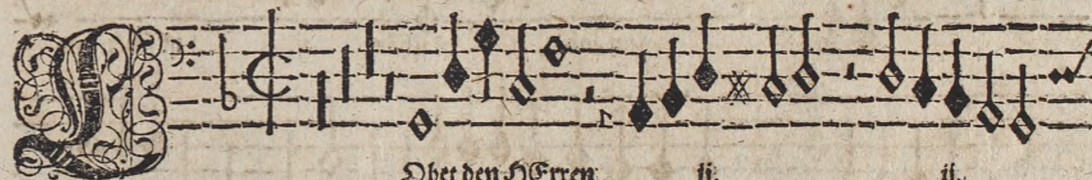 LObet den HErren ij. ij.